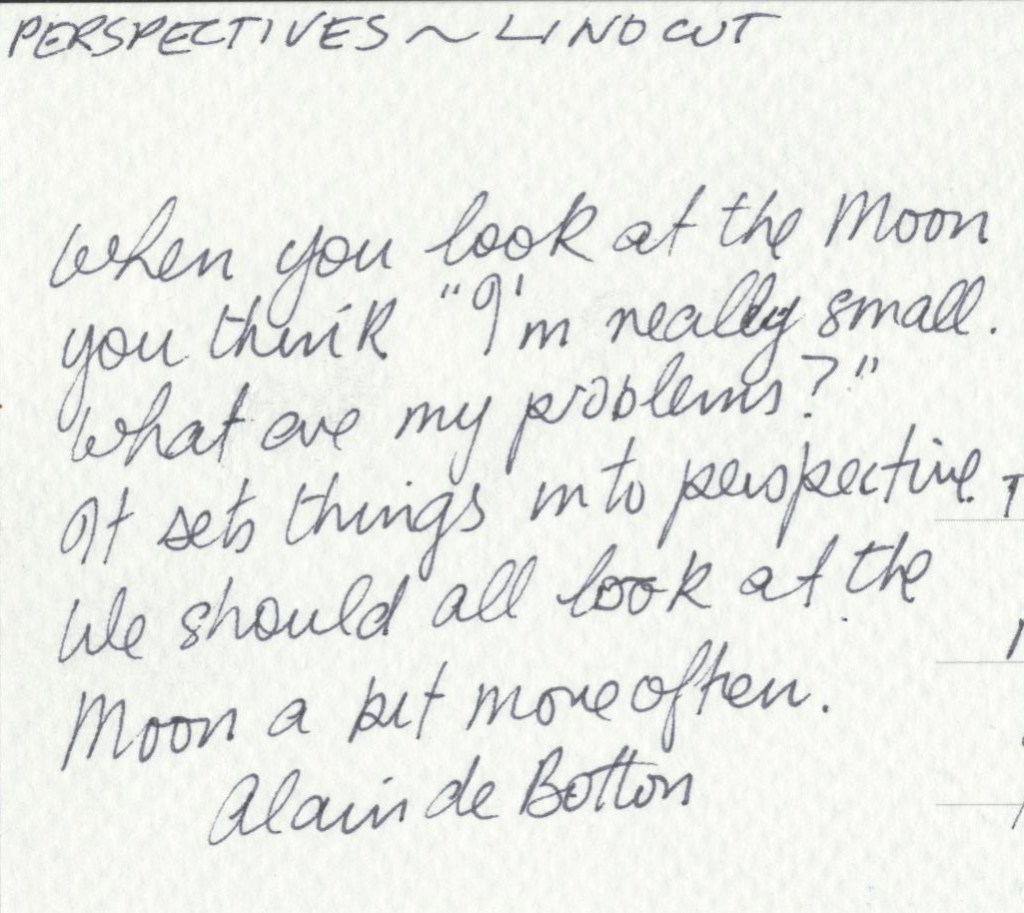 PERSPECTIVES ~ LINOCUT
When you look at the Moon
you think "I'm really small.
What are my problems?"
It sets things into perspective.
We should all look at the
Moon a bit more often.
Alain de Botton